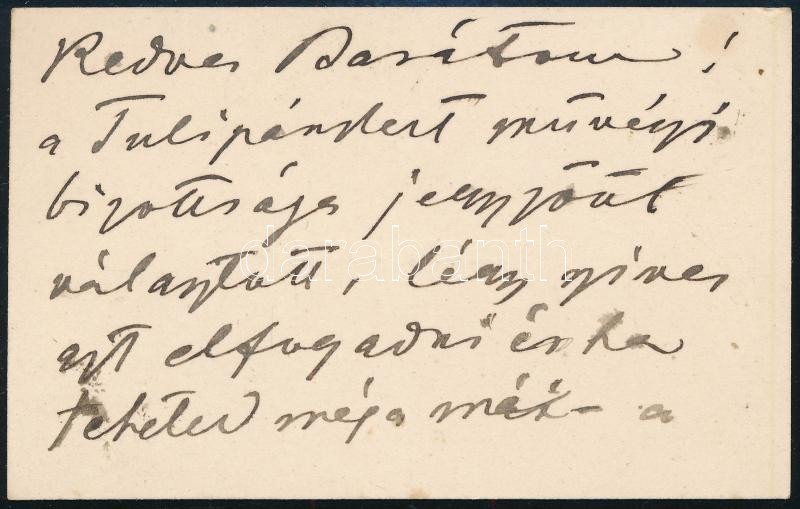 Kedves Barátom!
a Tulipánkert művészi
bizottsága jegyzőül
választott, légy szíves
azt elfogadni és ha
teheted még a a
darabanth